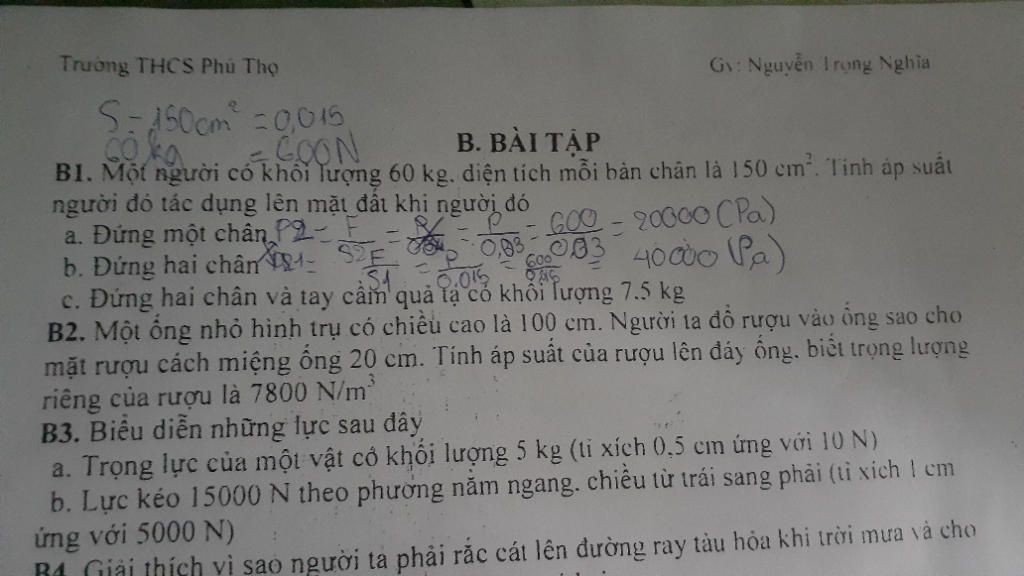 Trường THCS Phú Thọ Gv: Nguyễn Trọng Nghĩa
S = 150cm² = 0,015
60 kg = 600N
B. BÀI TẬP
B1. Một người có khối lượng 60 kg. diện tích mỗi bàn chân là 150 cm². Tính áp suất
người đó tác dụng lên mặt đất khi người đó
a. Đứng một chân P2 = F/S2 = = P/0,03 = 600/0,03 = 20000 (Pa)
b. Đứng hai chân = F/S1 = P/0,015 = 600/0,015 = 40000 (Pa)
c. Đứng hai chân và tay cầm quả tạ có khối lượng 7.5 kg
B2. Một ống nhỏ hình trụ có chiều cao là 100 cm. Người ta đổ rượu vào ống sao cho
mặt rượu cách miệng ống 20 cm. Tính áp suất của rượu lên đáy ống. biết trọng lượng
riêng của rượu là 7800 N/m³
B3. Biểu diễn những lực sau đây
a. Trọng lực của một vật có khối lượng 5 kg (tỉ xích 0,5 cm ứng với 10 N)
b. Lực kéo 15000 N theo phương nằm ngang. chiều từ trái sang phải (tỉ xích 1 cm
ứng với 5000 N)
B4. Giải thích vì sao người ta phải rắc cát lên đường ray tàu hỏa khi trời mưa và cho